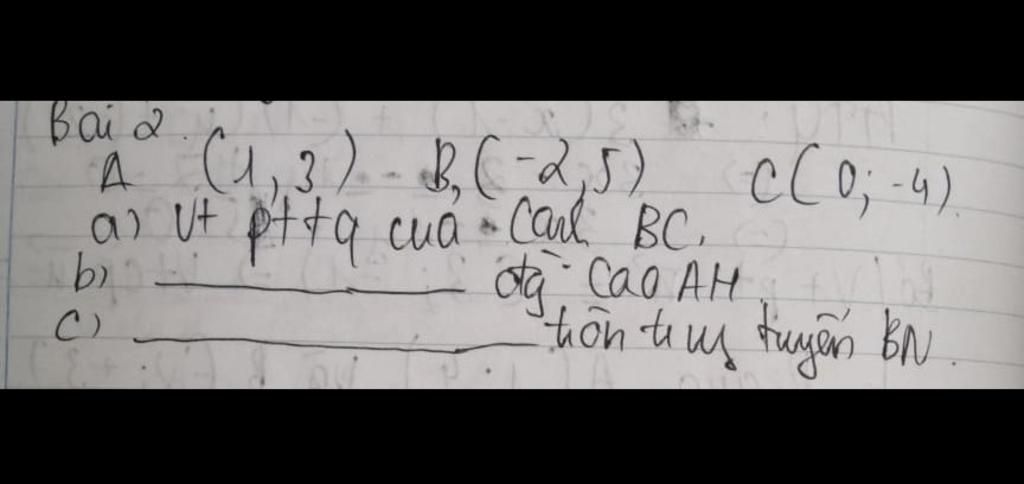 Bài 2.
A (1, 3) B, (-2, 5) C ( 0; -4).
a) Vt pttq cua Cạnh BC.
b) _______ đg` Cao AH
c) _______ tuyến BN.